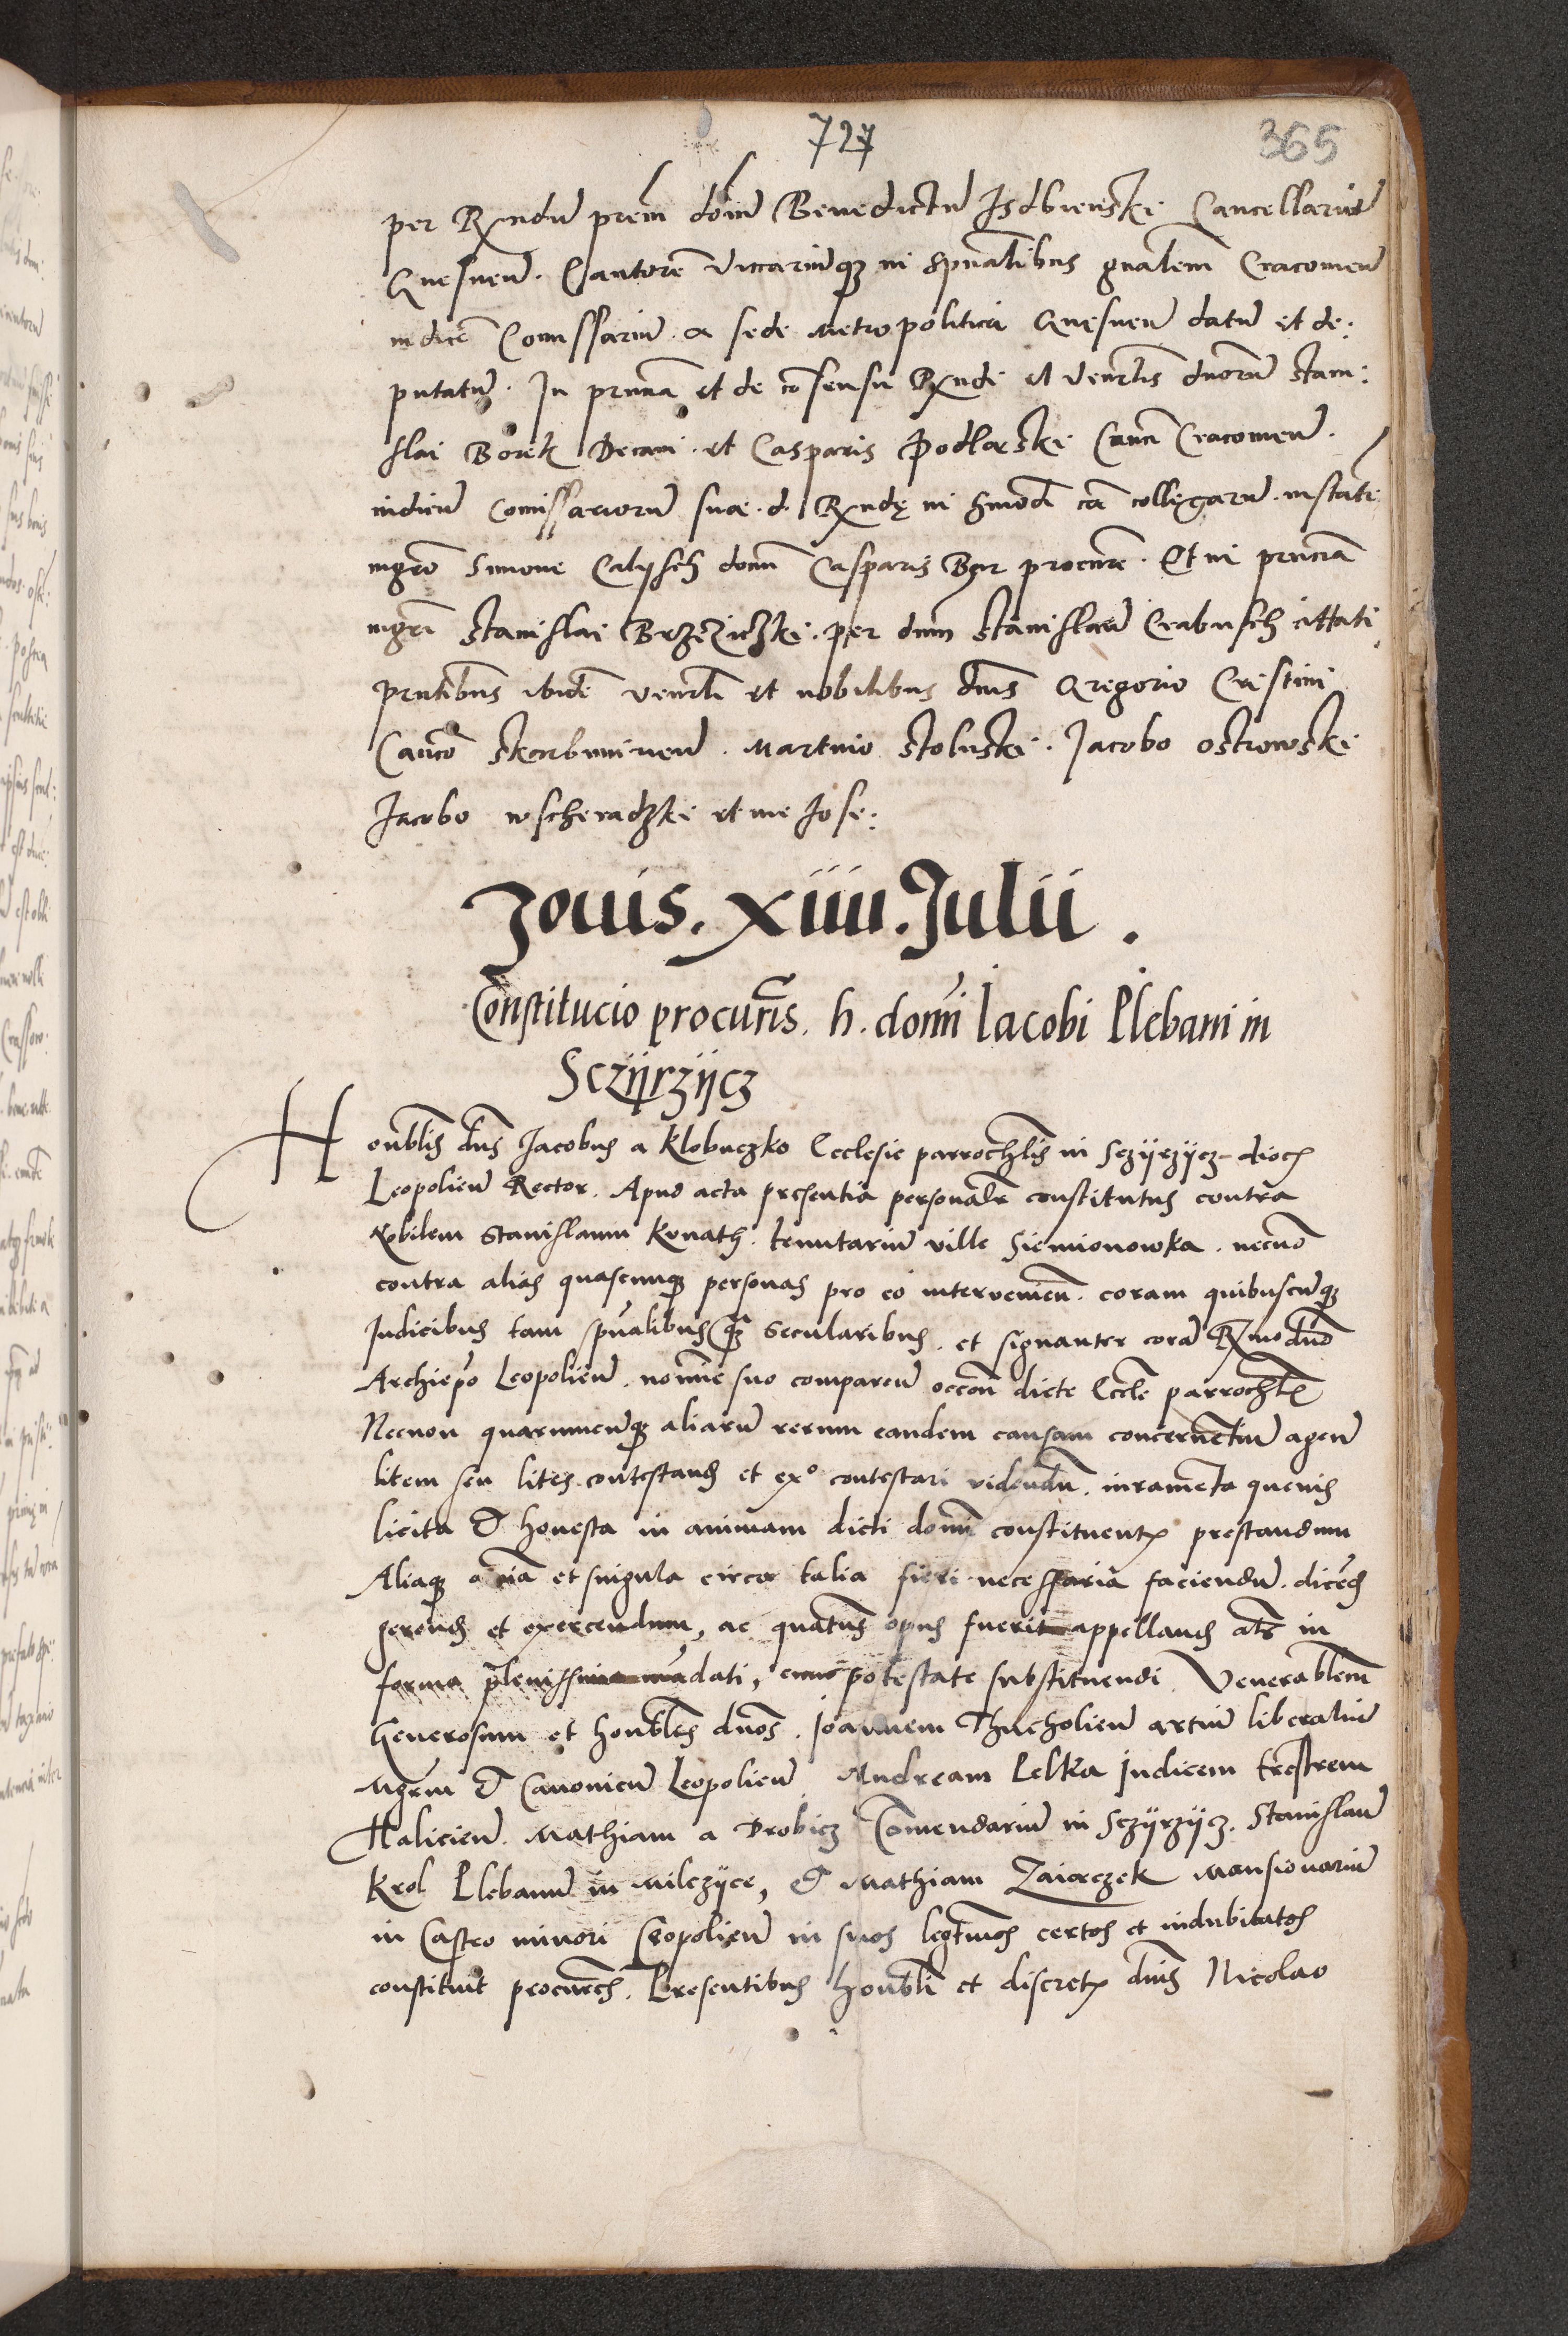 727
365
per Rxndū prem̄ dom̄ Benedictū Isdbienski Cancellariū
Gnesnen̄. Cantorē Vicariūq̷ in spūalibus gn̄alem Cracouien̄
iudicē Comissariū a sede metropolitica Gnesnen̄ datū et de:
putatū. In pn̄tia et de cōsensu Rxndi et Venerlis dnorū Stani:
slai Borek Decani. et Casparis Podlaski Canc̄ Cracouien̄.
iudicū Comissariorū suae. d. Rxndę in hmōi cā collegarū. instāte
mgrō Simone Calysch domī Casparis Ber procurē. Et in pn̄tia
mgrī Stanislai Brzeziczki. per dnm Stanislaū Crabusch cittati
pn̄tibus ibidē venerli et nobilibus dnis Gregorio Crestini
Canco Skarbimirien̄. Martino Stoluski. Jacobo Ostrowski
Jacobo Wscheradzki et me Jose:
Jouis. xiiii. Julii.
Constitucio procurīs. h. domī Iacobi Plebani in
Sczyrzycz
Honblis dns Jacobus a Klobuczko Ecclesie parrochlis in Sczyrzycz dioc̄
Leopolien̄ Rector. Apud acta presentia personalr constitutus contra
Nobilem Stanislaum Konath. tenutariū ville Siemionowka. necnō
contra alias quascunq̷ personas pro eo intervenien̄. coram quibuscūq̷
Judicibus tam spūalibus q̄ Secularibus. et signanter corā Rxmo dnō
Archiepō Leopolien̄. nomine suo comparen̄ occōn dicte Eccle parrochlis
Necnon quarumcūq̷ aliarū rerum eandem causam concernētiū agen̄
litem seu lites contestand̄ et exº contestari videndū. iuramēta quevis
licita & honesta in animam dicti domī constituentis prestandum
Aliaq̷ omīa et singula circa talia fieri necessaria faciendū. dicēd̄
gerend̄ et exercendum, ac quatens opus fuerit appelland̄ als in
forma plenissima mādati, cum potestate substituendi Venerablem
Generosum et honbles dnos. Joannem Thucholien̄ artiū liberaliū
Mgrm & Canonicū Leopolien̄ Andream Pelka Judicem trestrem
Halicien̄. Mathiam a Drobicz Comendariū in Sczyrzycz. Stanislaū
Krol Plebanū in Milczyce, & Mathiam Zaiaczek Mansionariū
in Castro minori Leopolien̄ in suos legtimos certos et indubitatos
constituit procures. Presentibus honbli et discretis dnis Nicolao